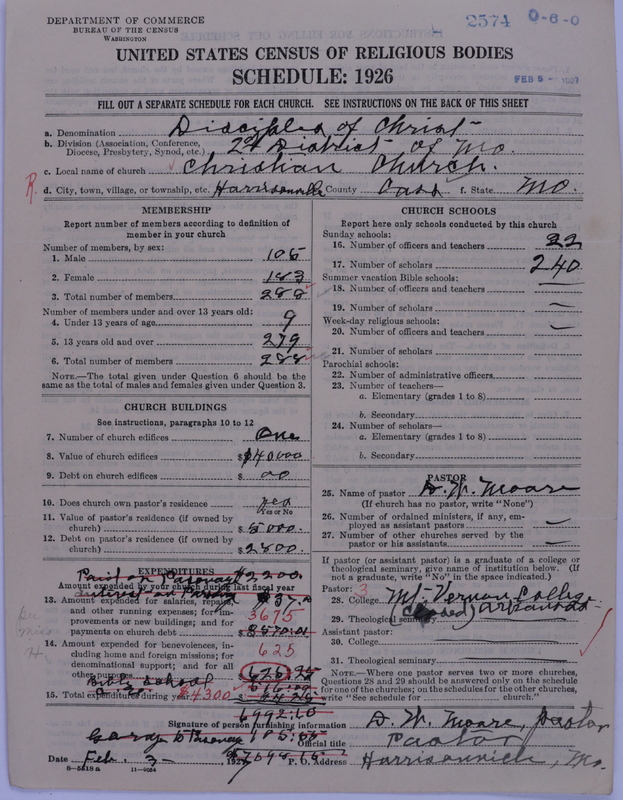 DEPARTMENT OF COMMERCE
BUREAU OF THE CENSUS
WASHINGTON
2574 0-6-0
UNITED STATES CENSUS OF RELIGIOUS BODIES
SCHEDULE: 1926
FEB 5 - 1927
FILL OUT A SEPARATE SCHEDULE FOR EACH CHURCH. SEE INSTRUCTIONS ON THE BACK OF THIS SHEET
a. Denomination Disciples of Christ
b. Division (Association, Conference, Diocese, Presbytery, Synod, etc.) 2nd District of Mo.
c. Local name of church Christian Church.
R. d. City, town, village, or township, etc. Harrisonville County Cass f. State Mo.
MEMBERSHIP
Report number of members according to definition of
member in your church
Number of members, by sex:
1. Male 105
2. Female 183
3. Total number of members 288
Number of members under and over 13 years old:
4. Under 13 years of age 9
5. 13 years old and over 279
6. Total number of members 288
NOTE.—The total given under Question 6 should be
same as the total of males and females given under Question 3.
CHURCH BUILDINGS
See instructions, paragraphs 10 to 12
7. Number of church edifices One
8. Value of church edifices $40000
9. Debt on church edifices $ 00
10. Does church own pastor's residence yes
Yes or No
11. Value of pastor's residence (if owned by
church) $5000.
12. Debt on pastor's residence (if owned by
church) $2800.
EXPENDITURES
Paid on Parsonage $2200.
Amount expended by your church during last fiscal year
Interest on
13. Amount expended for salaries, repairs,
and other running expenses; for im-
provements or new buildings; and for
payments on church debt
3675
14. Amount expended for benevolences, in-
cluding home and foreign missions; for
denominational support; and for all
other purposes
625
625
Bible School
15. Total expenditures during year $4300
6992.10
CHURCH SCHOOLS
Report here only schools conducted by this church
Sunday schools:
16. Number of officers and teachers 22
17. Number of scholars 240
Summer vacation Bible schools:
18. Number of officers and teachers —
19. Number of scholars —
Week-day religious schools:
20. Number of officers and teachers —
21. Number of scholars
Parochial schools:
22. Number of administrative officers
23. Number of teachers—
a. Elementary (grades 1 to 8)
b. Secondary
24. Number of scholars—
a. Elementary (grades 1 to 8)
b. Secondary
PASTOR
25. Name of pastor D. W. Moore
(If church has no pastor, write "None")
26. Number of ordained ministers, if any, em-
ployed as assistant pastors —
27. Number of other churches served by the
pastor or his assistants —
If pastor (or assistant pastor) is a graduate of a college or
theological seminary, give name of institution below. (If
not a graduate, write "No" in the space indicated.)
Pastor: 3
28. College Mt-Vernon College
29. Theological seminary (Closed) Arkansas
Assistant pastor:
30. College
31. Theological seminary
NOTE.—Where one pastor serves two or more churches,
Questions 28 and 29 should be answered only on the schedule
for one of the churches; on the schedules for the other churches,
write "See schedule for church."
Signature of person furnishing information D. W. Moore, Pastor
Official title Pastor
Date Feb. 3- 1927 P. O. Address Harrisonville, Mo.
8-5518a 11-9084